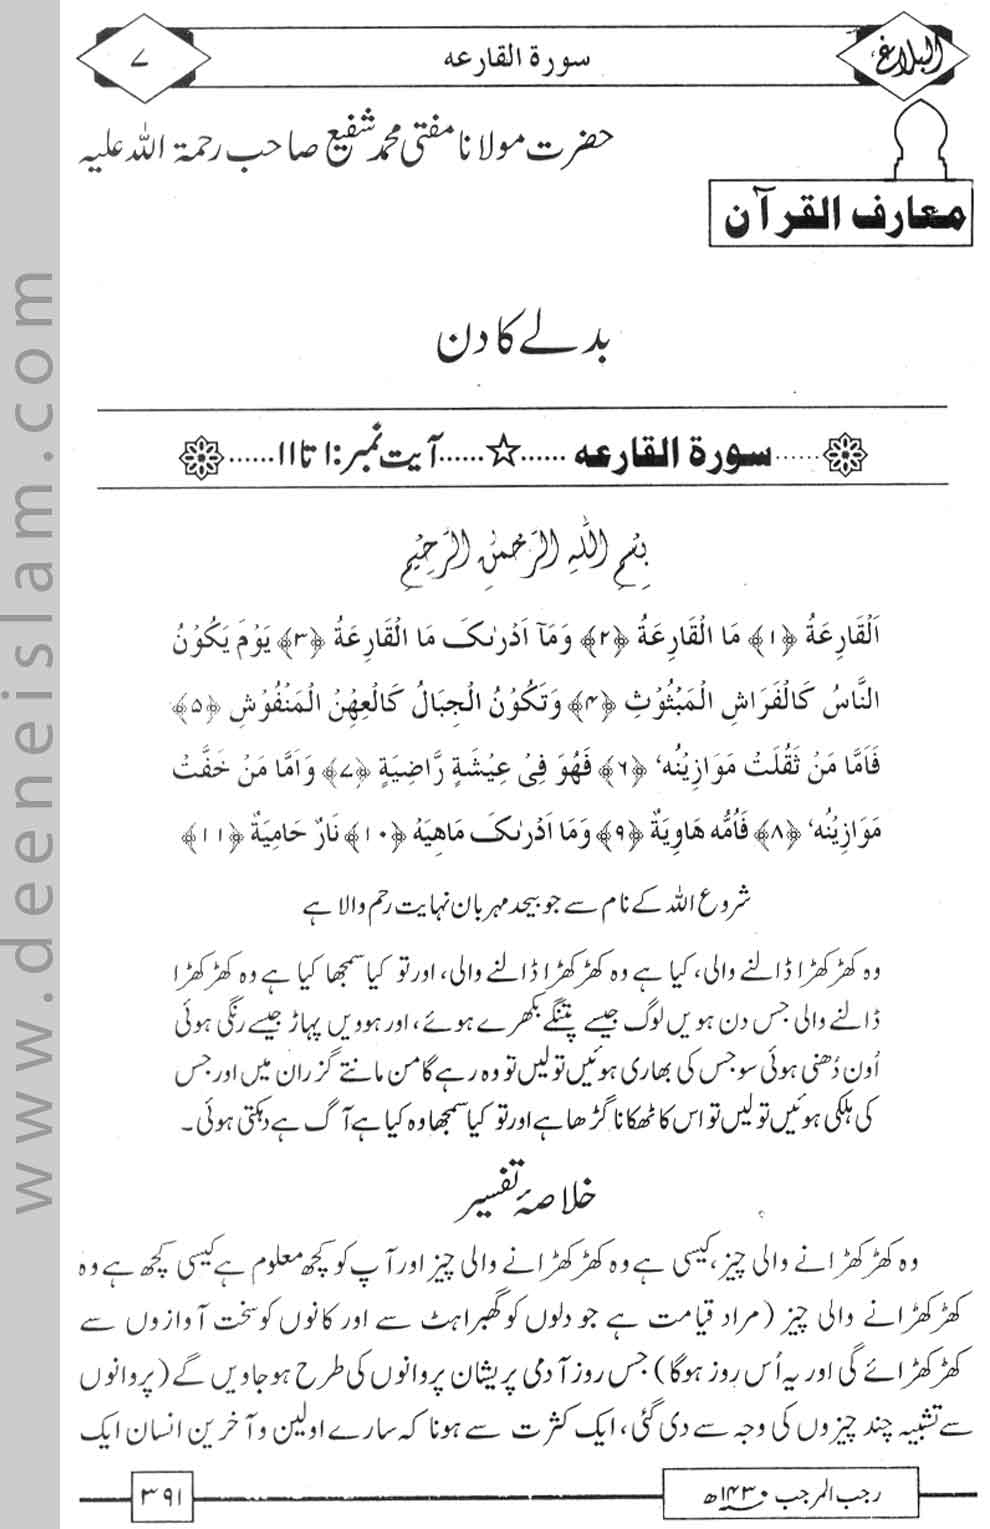 البلاغ
سورة القارعه
۷
حضرت مولانا مفتی محمد شفیع صاحب رحمۃ اللہ علیہ
معارف القرآن
بدلے کا دن
سورة القارعه ......☆...... آیت نمبر: ۱ تا ۱۱
بِسْمِ اللّٰهِ الرَّحْمٰنِ الرَّحِيْمِ
اَلْقَارِعَةُ ﴿۱﴾ مَا الْقَارِعَةُ ﴿۲﴾ وَمَآ اَدْرٰىکَ مَا الْقَارِعَةُ ﴿۳﴾ يَوْمَ يَكُوْنُ
النَّاسُ كَالْفَرَاشِ الْمَبْثُوْثِ ﴿۴﴾ وَتَكُوْنُ الْجِبَالُ كَالْعِهْنِ الْمَنْفُوْشِ ﴿۵﴾
فَاَمَّا مَنْ ثَقُلَتْ مَوَازِيْنُه‘ ﴿۶﴾ فَهُوَ فِىْ عِيْشَةٍ رَّاضِيَةٍ ﴿۷﴾ وَاَمَّا مَنْ خَفَّتْ
مَوَازِيْنُه‘ ﴿۸﴾ فَاُمُّه هَاوِيَةٌ ﴿۹﴾ وَمَا اَدْرٰىکَ مَاهِيَهْ ﴿۱۰﴾ نَارٌ حَامِيَةٌ ﴿۱۱﴾
شروع اللہ کے نام سے جو بیحد مہربان نہایت رحم والا ہے
وہ کھڑکھڑا ڈالنے والی، کیا ہے وہ کھڑکھڑا ڈالنے والی، اور تو کیا سمجھا کیا ہے وہ کھڑکھڑا
ڈالنے والی جس دن ہویں لوگ جیسے پتنگے بکھرے ہوئے، اور ہوویں پہاڑ جیسے رنگی ہوئی
اُون دُھنی ہوئی سو جس کی بھاری ہوئیں تولیں تو وہ رہے گا من مانتے گزران میں اور جس
کی ہلکی ہوئیں تولیں تو اس کا ٹھکانا گڑھا ہے اور تو کیا سمجھا وہ کیا ہے آگ ہے دہکتی ہوئی۔
خلاصۂ تفسیر
وہ کھڑکھڑانے والی چیز، کیسی ہے وہ کھڑکھڑانے والی چیز اور آپ کو کچھ معلوم ہے کیسی کچھ ہے وہ
کھڑکھڑانے والی چیز (مراد قیامت ہے جو دلوں کو گھبراہٹ سے اور کانوں کو سخت آوازوں سے
کھڑکھڑائے گی اور یہ اُس روز ہوگا) جس روز آدمی پریشان پروانوں کی طرح ہو جاویں گے (پروانوں
سے تشبیہ چند چیزوں کی وجہ سے دی گئی، ایک کثرت سے ہونا کہ سارے اولین و آخرین انسان ایک
رجب المرجب ۱۴۳۰ھ
۳۹۱
www.deeneislam.com